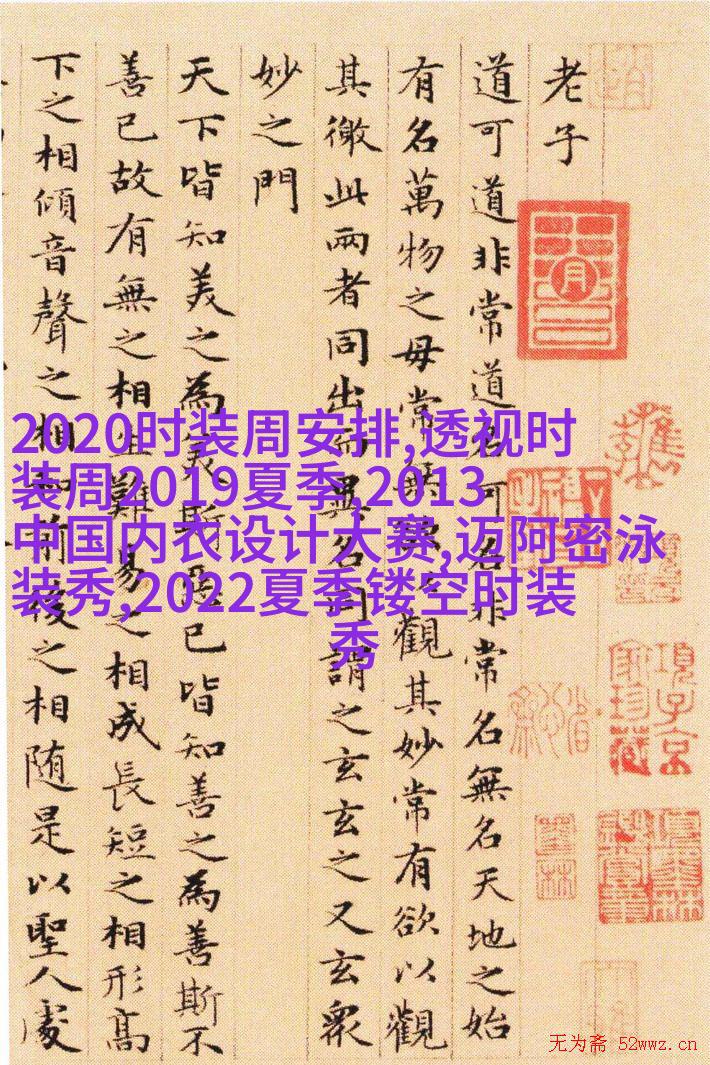 老子
道可道非常道名可名非常名無名天地之始
有名萬物之母常無欲以觀其妙常有欲以觀
其徼此兩者同出而異名同謂之玄玄之又玄眾
妙之門
天下皆知美之為美斯惡已皆知善之為善斯不
善已故有無之相生難易之相成長短之相形高
下之相傾音聲之相和前後之相随是以聖人處
2020时装周安排,透视时
装周2019夏季,2013
中国内衣设计大赛,迈阿密泳
装秀,2022夏季镂空时装
秀
月
項子京
家珍藏
无为斋 52wwz.cn